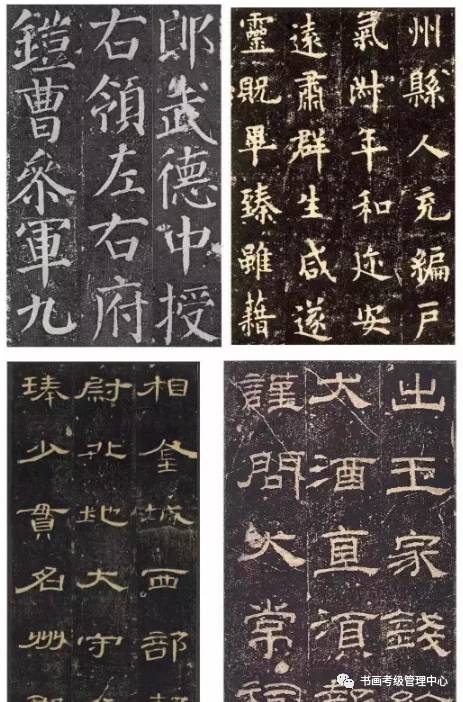 郎武德中授
右領左右府
鎧曹參軍九
州縣人充編戶
氣淑年和迩安
遠肅群生咸遂
靈貺畢臻雖藉
相金城西部
尉北地大守
臻少貫名州
出王家錢給
犬酒直須報
謹問大常祠
书画考级管理中心